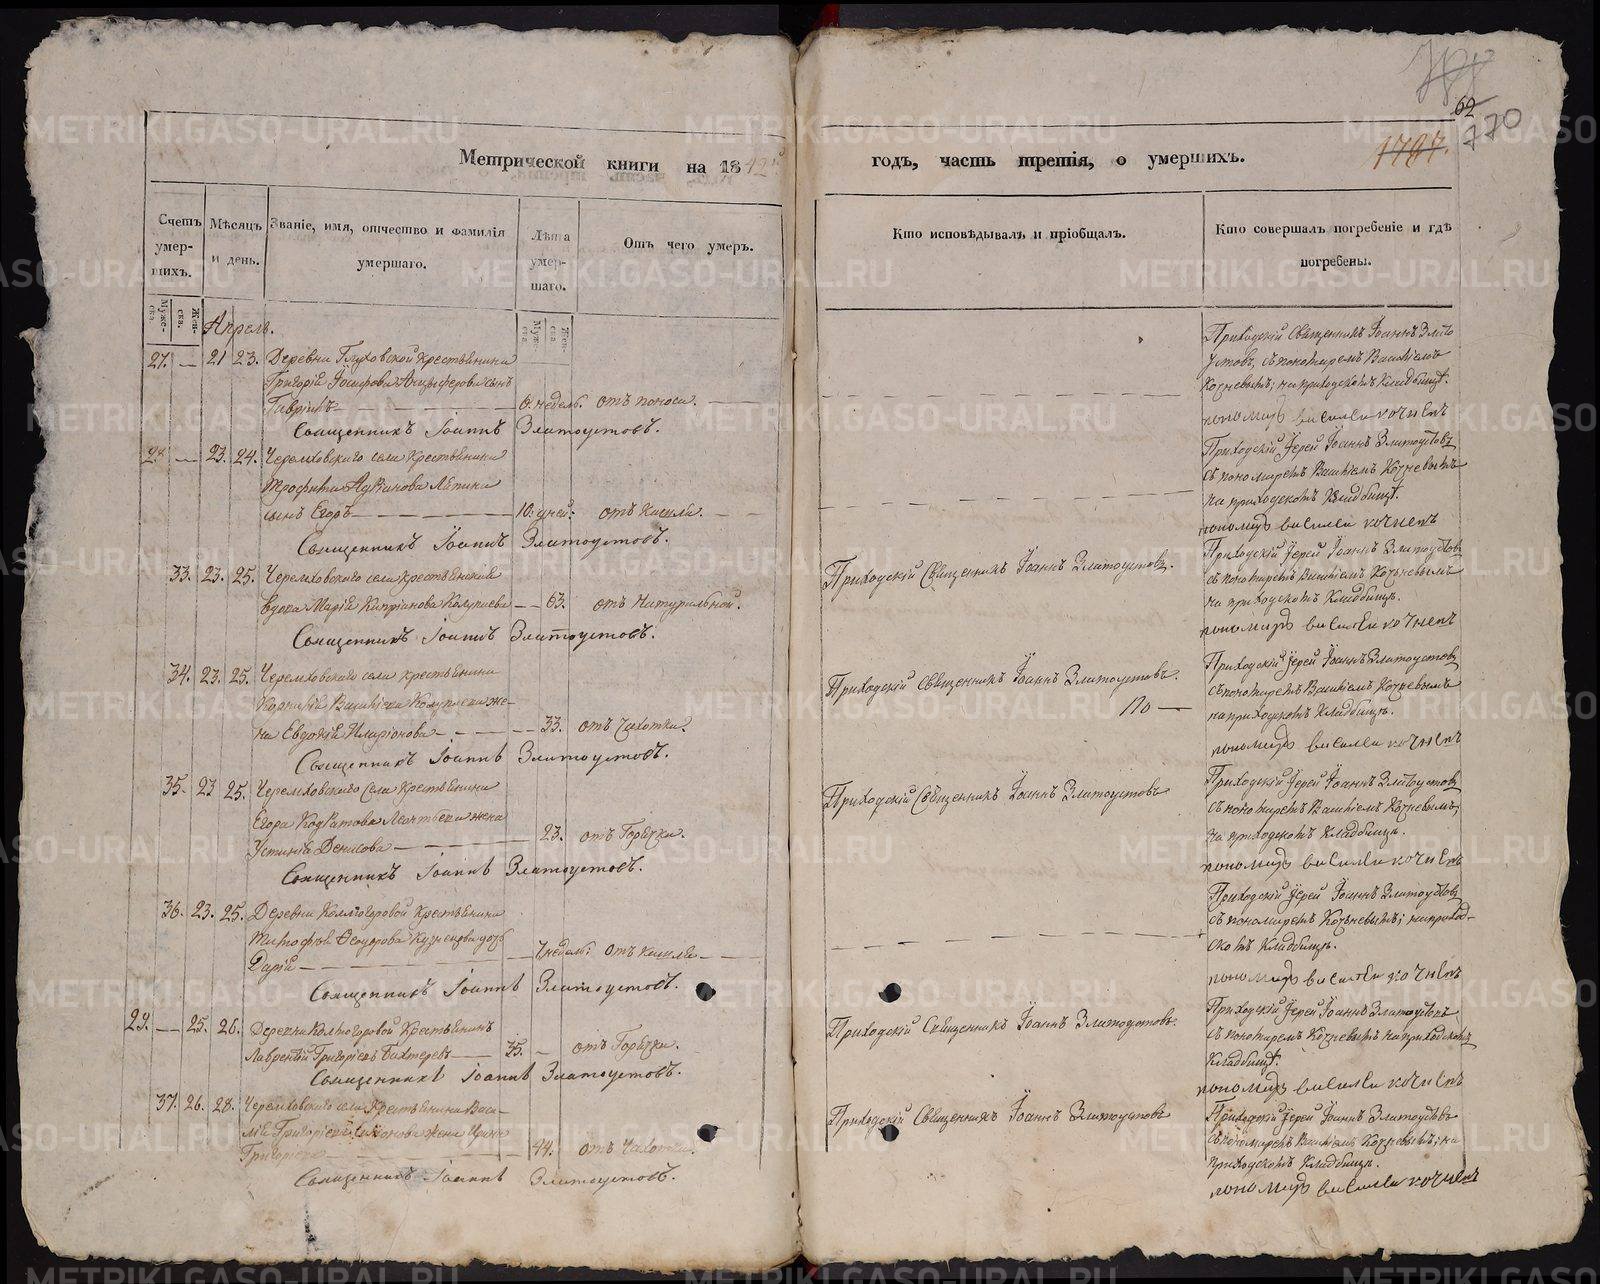 62
770
1787.
Метрической книги на 1842й
годъ, часть третія, о умершихъ.
Счетъ умер-шихъ.
Муже-ска.
Жен-ска.
Мѣсяцъ и день.
Званіе, имя, отчество и фамилія умершаго.
Лѣта умер-шаго.
Муж-ска
Жен-ска
Отъ чего умеръ.
Кто исповѣдывалъ и пріобщалъ.
Кто совершалъ погребеніе и гдѣ погребены.
Апрель.
27. — 21 23. Деревни Глуховской крестьянина
Григорій Іосифова Анциферова сынъ
Гавріилъ — 6. недѣль. отъ поноса. —
Священникъ Іоаннъ Златоустовъ.
Приходскій Священникъ Іоаннъ Злато
устовъ, съ пономаремъ Василіемъ
Кочневымъ; на приходскомъ Кладбищѣ.
пономарь василеи кочневъ
28. — 23. 24. Черемховскаго села Крестьянина
Трофима Адріанова Ляпина
сынъ Егоръ — 10. дней: отъ Кашля. —
Священникъ Іоаннъ Златоустовъ.
Приходскій Іерей Іоаннъ Златоустовъ
съ пономаремъ Василіемъ Кочневымъ
на приходскомъ Кладбищѣ.
пономарь василеи кочневъ
33. 23. 25. Черемховскаго села крестьянская
вдова Марія Кипріанова Колупаева — 63. отъ Натуральной.
Священникъ Іоаннъ Златоустовъ.
Приходскій Священникъ Іоаннъ Златоустовъ.
Приходскій Іерей Іоаннъ Златоустовъ
съ пономаремъ Василіемъ Кочневымъ
на приходскомъ Кладбищѣ.
пономарь василеи кочневъ
34. 23. 25. Черемховскаго села крестьянина
Корнилій Василіева Колупаева же-
на Евдокія Иларіонова — 33. отъ Чахотки.
Священникъ Іоаннъ Златоустовъ.
Приходскій Священникъ Іоаннъ Златоустовъ.
Приходскій Іерей Іоаннъ Златоустовъ
съ пономаремъ Василіемъ Кочневымъ
на приходскомъ Кладбищѣ.
пономарь василеи кочневъ
35. 23 25. Черемховскаго Села Крестьянина
Егора Кодратова Леонтьева жена
Устинія Денисова — 23. отъ Горячки.
Священникъ Іоаннъ Златоустовъ.
Приходскій Священникъ Іоаннъ Златоустовъ
Приходскій Іерей Іоаннъ Златоустовъ
съ пономаремъ Василіемъ Кочневымъ,
на приходскомъ Кладбищѣ.
пономарь василеи кочневъ
36. 23. 25. Деревни Колмогоровой Крестьянина
Тимофея Ѳеодорова Кузнецова дочь
Дарія — 7 недѣль: отъ кашля —
Священникъ Іоаннъ Златоустовъ.
Приходскій Іерей Іоаннъ Златоустовъ
съ пономаремъ Кочневымъ; на приход-
скомъ Кладбищѣ.
пономарь василеи кочневъ
29. — 25. 26. Деревни Колмогоровой Крестьянинъ
Лаврентій Григоріевъ Бахтеревъ — 35. — отъ Горячки.
Священникъ Іоаннъ Златоустовъ.
Приходскій Священникъ Іоаннъ Златоустовъ.
Приходскій Іерей Іоаннъ Златоустовъ
съ пономаремъ Кочневымъ на приходскомъ
Кладбищѣ.
пономарь василеи кочневъ
37. 26. 28. Черемховскаго села Крестьянина Васи-
лія Григоріева жена Ирина
Григорьева — 44. отъ Чахотки.
Священникъ Іоаннъ Златоустовъ.
Приходскій Священникъ Іоаннъ Златоустовъ
Приходскій Іерей Іоаннъ Златоустовъ
съ пономаремъ Василіемъ Кочневымъ; на
приходскомъ Кладбищѣ.
пономарь василеи кочневъ
METRIKI.GASO-URAL.RU